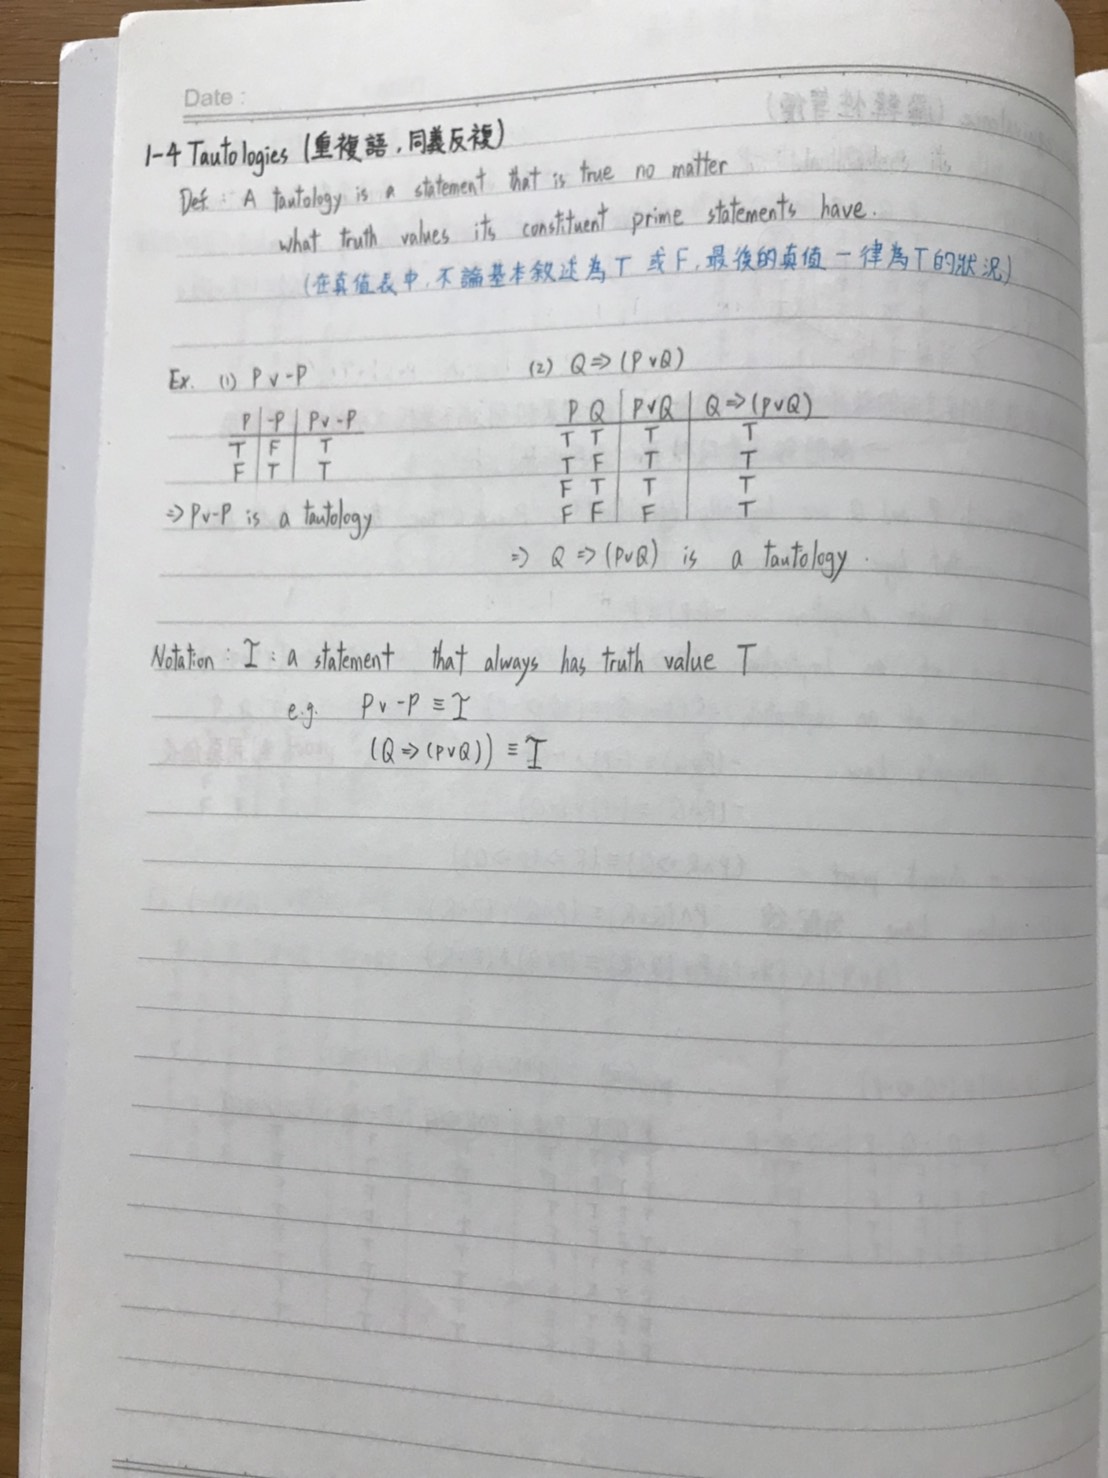 Date :
1-4 Tautologies (重複語,同義反複)
Def : A tautology is a statement that is true no matter
what truth values its constituent prime statements have.
(在真值表中,不論基本敘述為 T 或 F,最後的真值一律為T的狀況)
Ex. (1) P∨-P
P -P P∨-P
T F T
F T T
⇒ P∨-P is a tautology
(2) Q⇒(P∨Q)
P Q P∨Q Q⇒(P∨Q)
T T T T
T F T T
F T T T
F F F T
⇒ Q⇒(P∨Q) is a tautology.
Notation : I : a statement that always has truth value T
e.g. P∨-P ≡ I
(Q⇒(P∨Q)) ≡ I